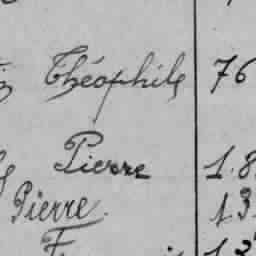 Théophile 76
Pierre 1.8
Pierre. 13